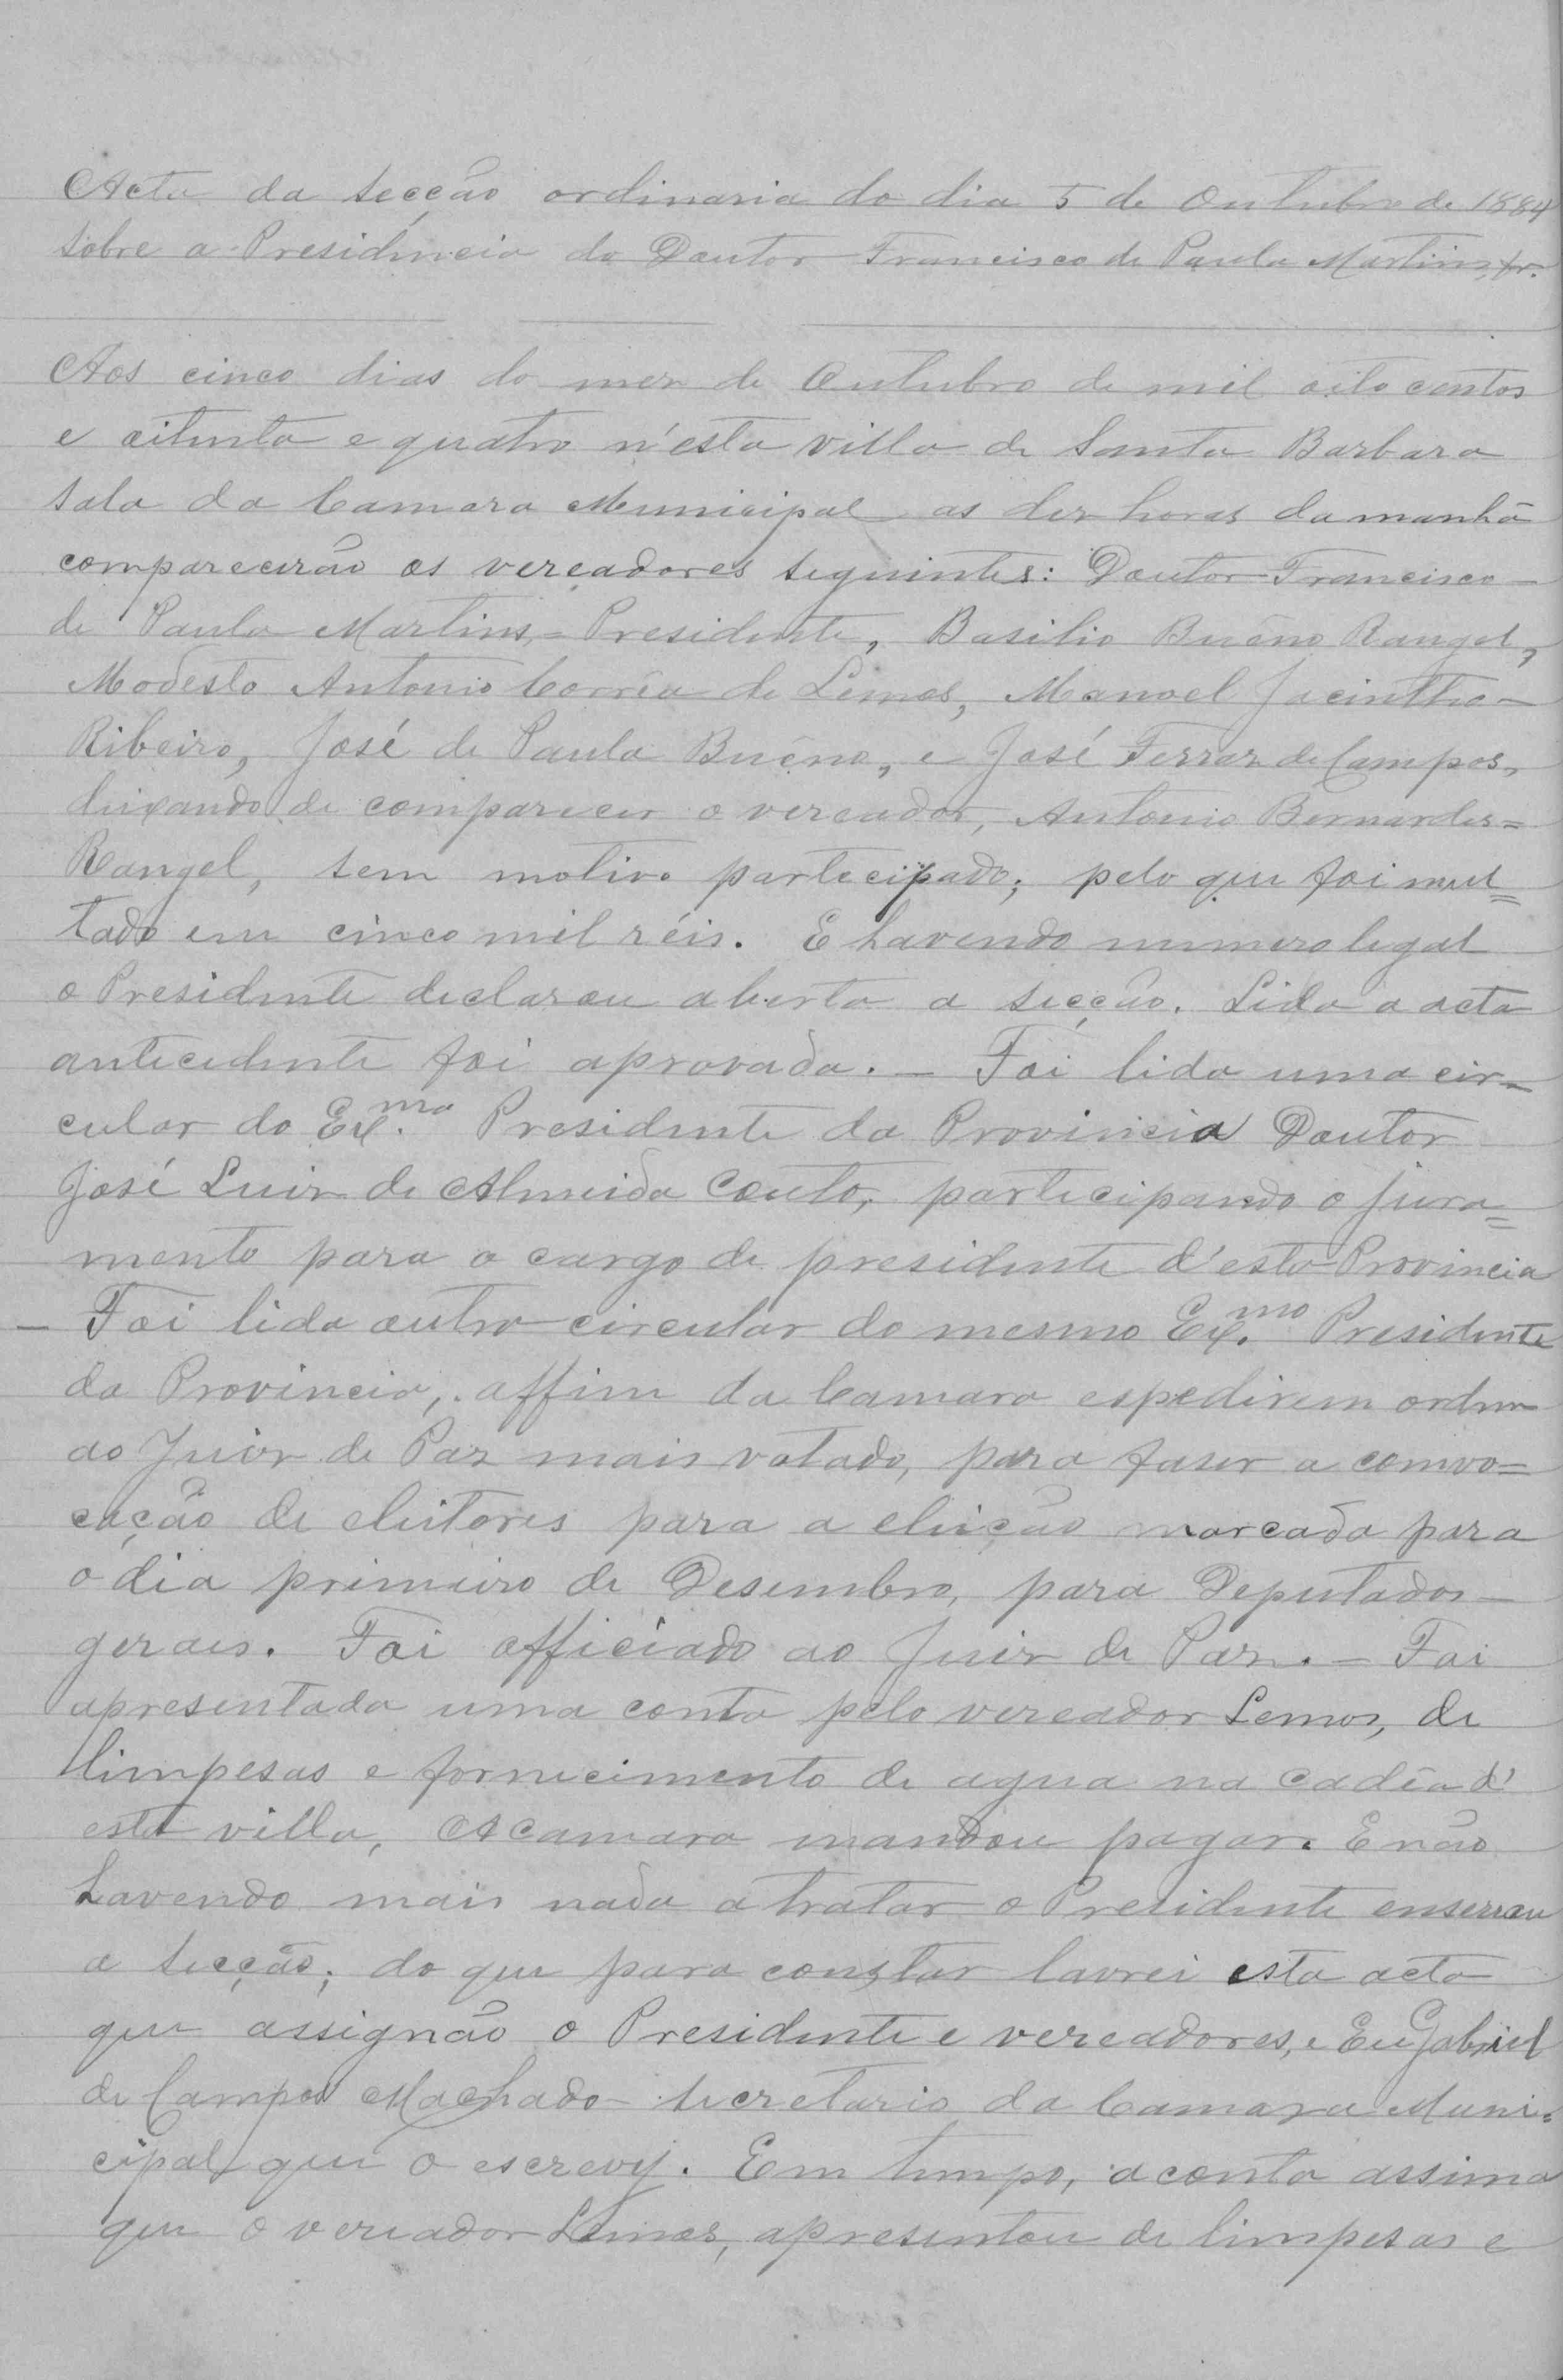 Acta da secção ordinaria do dia 5 de Outubro de 1884
sobre a Presidencia do Doutor Francisco de Paula Martins
Aos cinco dias do mez de Outubro de mil oito centos
e oitenta e quatro n'esta villa de Santa Barbara
sala da Camara Municipal as dez horas da manhã
comparecerão os vereadores seguintes: Doutor Francisco
de Paula Martins, = Presidente, Basilio Buêno Rangel,
Modesto Antonio Corrêa de Lemos, Manoel Jacintho
Ribeiro, José de Paula Buêno, e José Ferraz de Campos,
deixando de comparecer o vereador, Antonio Bernardes =
Rangel, sem motivo partecipado; pelo que foi mul=
tado em cinco mil réis. E havendo numero legal
o Presidente declarou aberta a secção. Lida a acta
antecedente foi aprovada. – Foi lida uma cir-
cular do Ex.mo Presidente da Provincia Doutor
José Luiz de Almeida Couto, participando o jura=
mento para o cargo de presidente d'esta Provincia
– Foi lida outro circular do mesmo Ex.mo Presidente
da Provincia, affim da Camara espedirem ordem
ao Juiz de Paz mais votado, para faser a convo=
cação de eleitores para a eleição marcada para
o dia primeiro de Desembro, para Deputados
geraes. Foi officiado ao Juiz de Paz. – Foi
apresentada uma conta pelo vereador Lemos, de
limpesas e fornecimento de agua na cadêa d'
esta villa, A camara mandou pagar. E não
havendo mais nada a tratar o Presidente enserrou
a secção; do que para constar lavrei esta acta
que assignão o Presidente e vereadores, e Eu Gabriel
de Campos Machado secretario da Camara Muni=
cipal que o escrevy. Em tempo, a conta assima
que o vereador Lemos, apresentou de limpesas e